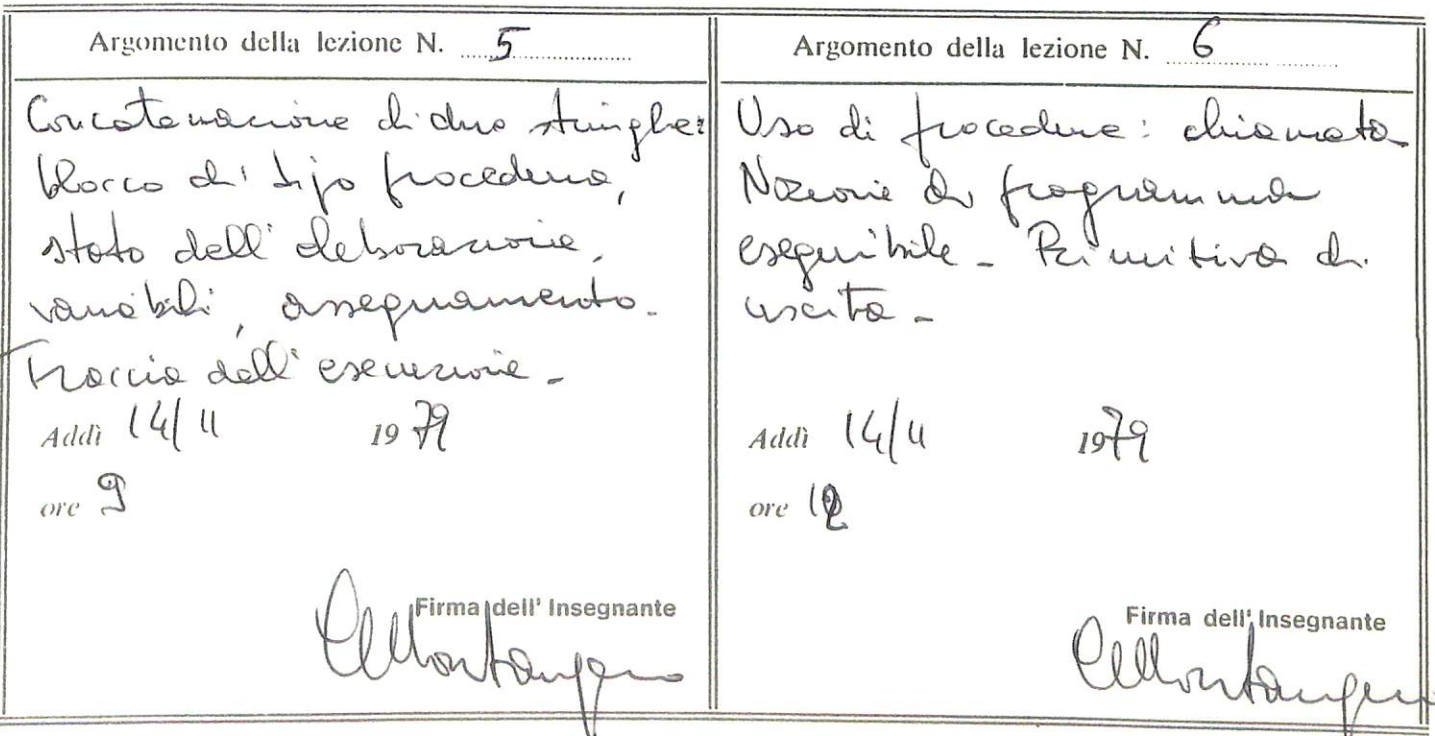 Argomento della lezione N. 5
Concatenazione di due stringhe:
blocco di tipo procedura,
stato dell'elaborazione,
variabili, assegnamento.
Traccia dell'esecuzione -
Addì 14/11 1979
ore 9
Firma dell' Insegnante
CMontangero
Argomento della lezione N. 6
Uso di procedure: chiamata
Nozione di programma
eseguibile - Primitiva di
uscita -
Addì 14/11 1979
ore 12
Firma dell' Insegnante
CMontangero